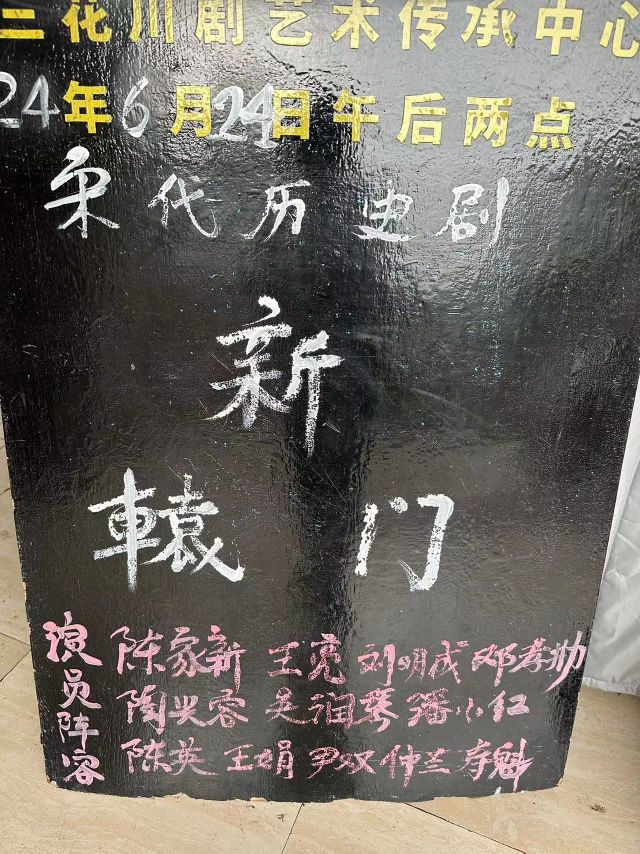 三花川剧艺术传承中心
24年6月24日午后两点
宋代历史剧
新
辕门
演员阵容
陈家新 王亮 刘明成 邓孝帅
陶兴容 吴润琴 潘小红
陈英 王娟 尹双 仲兰 存魁